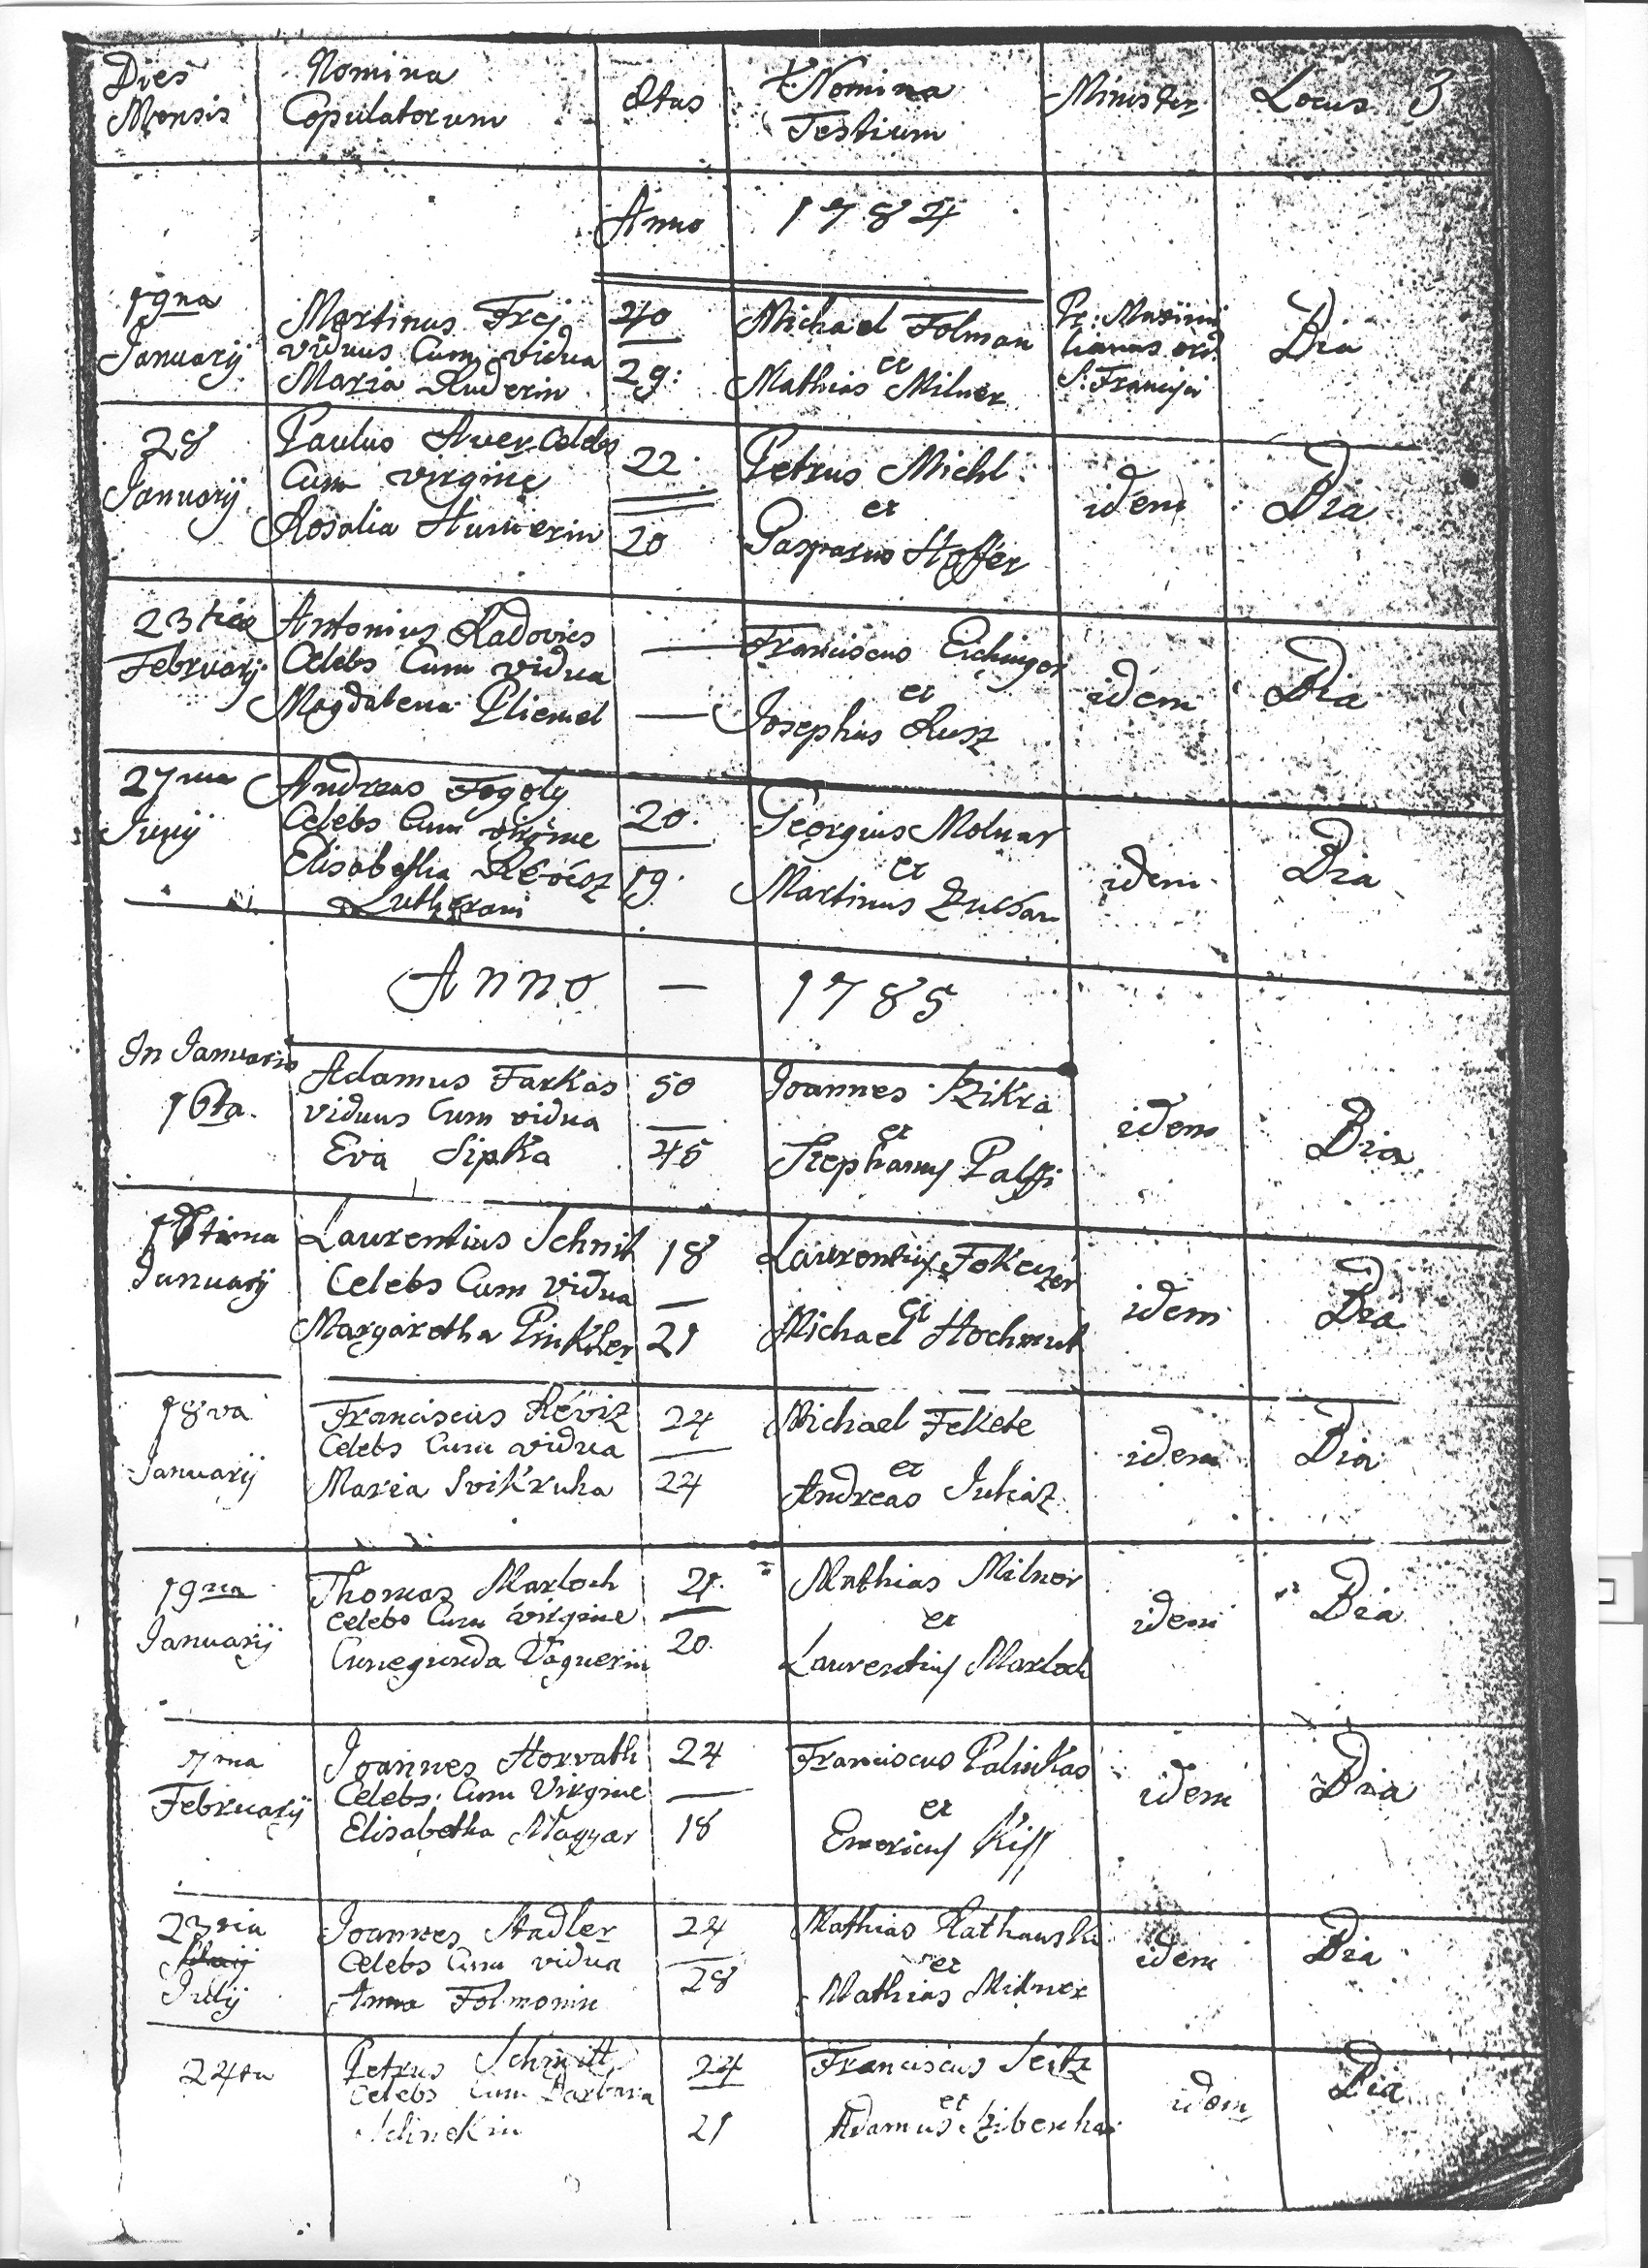 Dies Mensis
Nomina Copulatorum
Ætas
Nomina Testium
Minister
Locus 3
Anno 1784
19na Januarij
Martinus Frej
viduus Cum vidua
Maria Ruderin
40
29:
Michael Folman
et
Mathias Milner
Pr: Maximi
lianus ord.
S: Francisci
Bia
28 Januarij
Paulus Auer Celebs
Cum virgine
Rosalia
22
20
Petrus Michl
et
Gasparus Hoffer
idem
Bia
23tia Februarij
Antonius Radovics
Celebs Cum vidua
Magdalena Pliemel
—
—
Franciscus Eichinger
et
Josephus Rusz
idem
Bia
27ma Junij
Andreas Fogoly
Celebs Cum virgine
Elisabetha
Lutherani
20.
19.
Georgius Molnar
et
Martinus
idem
Bia
Anno — 1785
In Januario
16ta.
Adamus Farkas
viduus Cum vidua
Eva Sipka
50
45
Joannes Szikra
et
Stephanus Palffi
idem
Bia
17tima
Januarij
Laurentius Schnit
Celebs Cum vidua
Margaretha Prinkler
18
21
Laurentius
et
Michael Hochmut
idem
Bia
18va
Januarij
Franciscus Révisz
Celebs Cum vidua
Maria Svikruha
24
24
Michael Fekete
et
Andreas Juhász
idem
Bia
19na
Januarij
Thomas Marloch
celebs Cum virgine
Cunegunda Vagnerin
21.
20.
Mathias Milner
et
Laurentius Marloch
idem
Bia
7ma
Februarij
Joannes Horvath
Celebs Cum Virgine
Elisabetha Magyar
24
18
Franciscus Palinkas
et
Emericus Kiss
idem
Bia
23tia
Julij
Joannes Stadler
Celebs Cum vidua
Anna Folmonin
24
28
Mathias Rathauski
et
Mathias Milner
idem
Bia
24ta
Petrus Schmitt
Celebs Cum Barbara
24
21
Franciscus Seitz
et
Adamus
idem
Bia